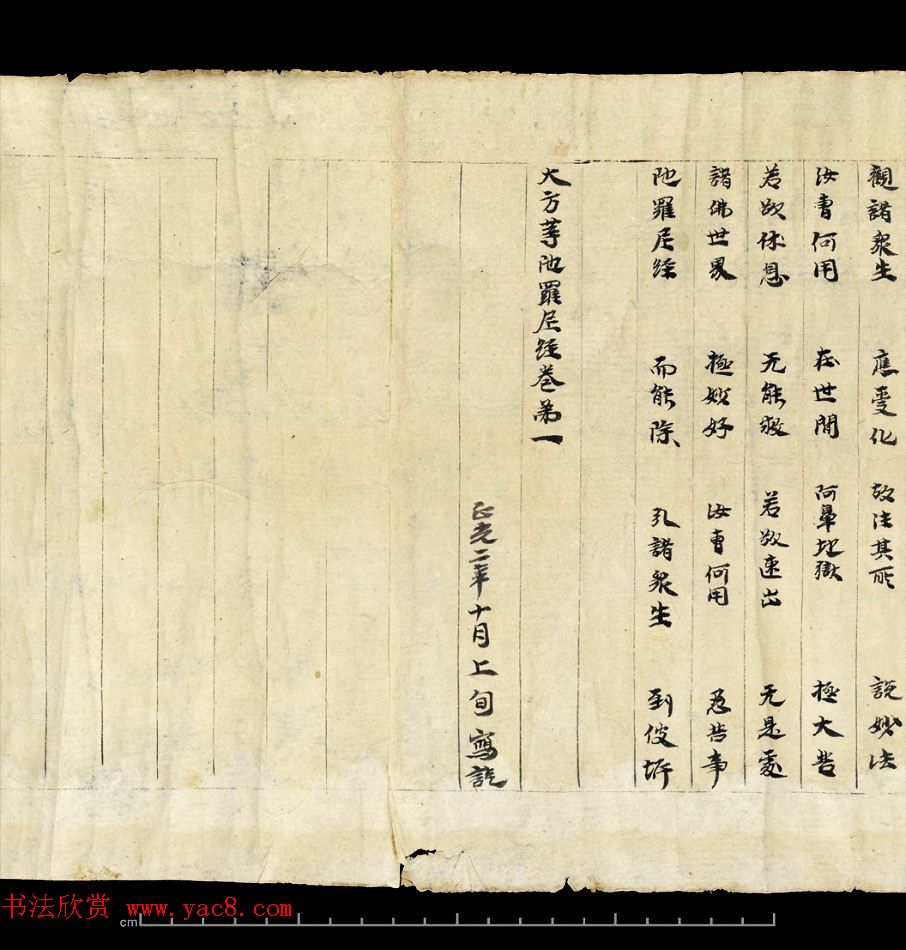 觀諸衆生 應受化 故注其所 說妙法
汝曹何用 在世間 阿鼻地獄 極大苦
若欲休息 无能救 若欲速出 无是處
諸佛世界 極妙好 汝曹何用 忍苦事
陁羅尼經 而能除 孔諸衆生 到彼岍
大方等陁羅尼經卷弟一
正光二年十月上旬寫訖
书法欣赏 www.yac8.com
cm